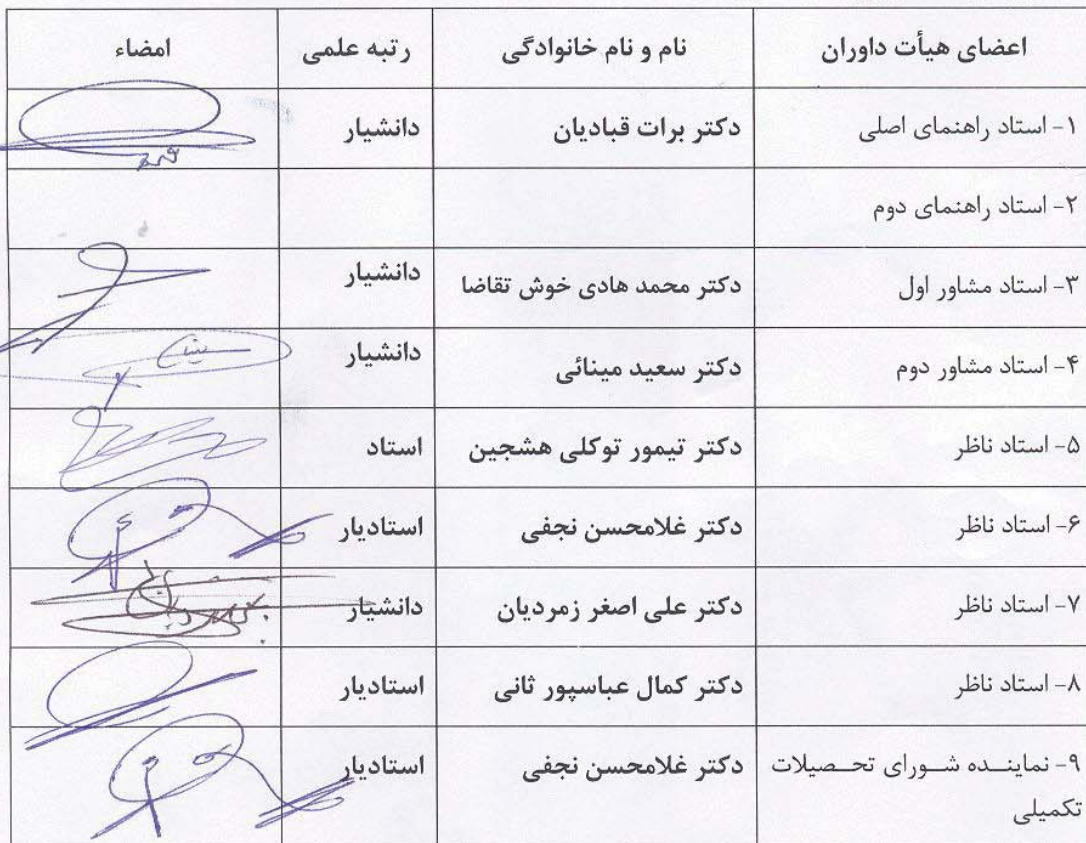 اعضای هیأت داوران نام و نام خانوادگی رتبه علمی امضاء
۱- استاد راهنمای اصلی دکتر برات قبادیان دانشیار
۲- استاد راهنمای دوم
۳- استاد مشاور اول دکتر محمد هادی خوش تقاضا دانشیار
۴- استاد مشاور دوم دکتر سعید مینائی دانشیار
۵- استاد ناظر دکتر تیمور توکلی هشجین استاد
۶- استاد ناظر دکتر غلامحسن نجفی استادیار
۷- استاد ناظر دکتر علی اصغر زمردیان دانشیار
۸- استاد ناظر دکتر کمال عباسپور ثانی استادیار
۹- نماینده شورای تحصیلات دکتر غلامحسن نجفی استادیار
تکمیلی